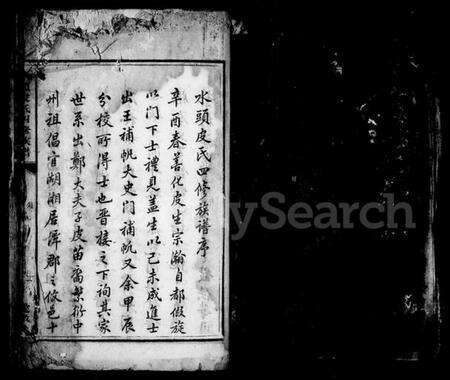 水頭皮氏四修族譜序
辛酉春善化皮生宗瀚自都假旋
以門下士禮見蓋生以己未成進士
出王補帆太史門補帆又余甲辰
分校所得士也晉接之下詢其家
世系出鄭大夫子皮苗裔繁衍中
州祖倡宦湖湘居潭郡之攸邑十
ySearch